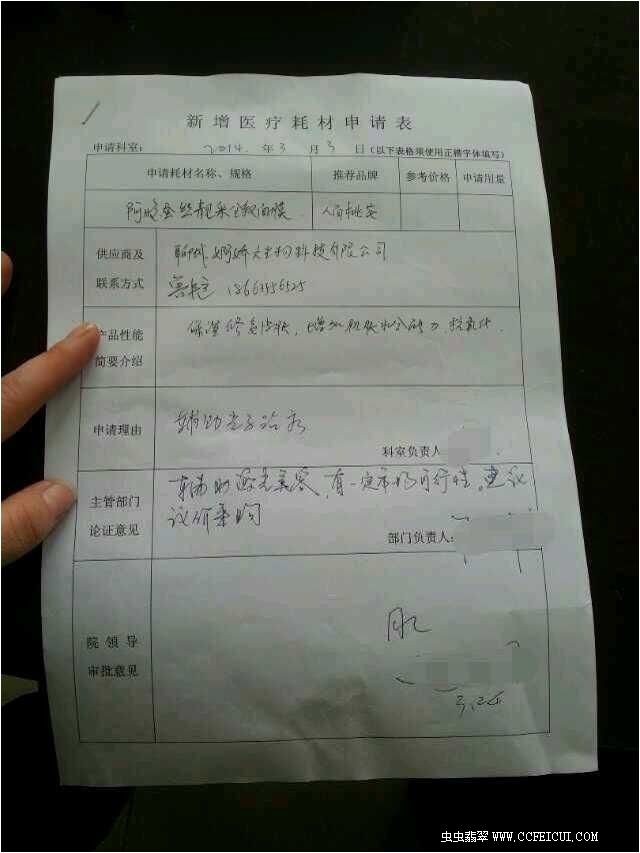 新增医疗耗材申请表
申请科室： 2014. 年 3 月 3 日（以下表格须使用正楷字体填写）
申请耗材名称、规格 推荐品牌 参考价格 申请用量
蚕丝靓采 面膜
供应商及 聊城 生物科技有限公司
联系方式 18663556525
产品性能 保湿修复皮肤，增加肌肤 力，抗氧化.
简要介绍
申请理由 辅助 治疗
科室负责人
主管部门 辅助激光美容，有一定市场可行性。建议
论证意见 议价采购
部门负责人：
院领导
审批意见
3.26
虫虫翡翠 WWW.CCFEICUI.COM